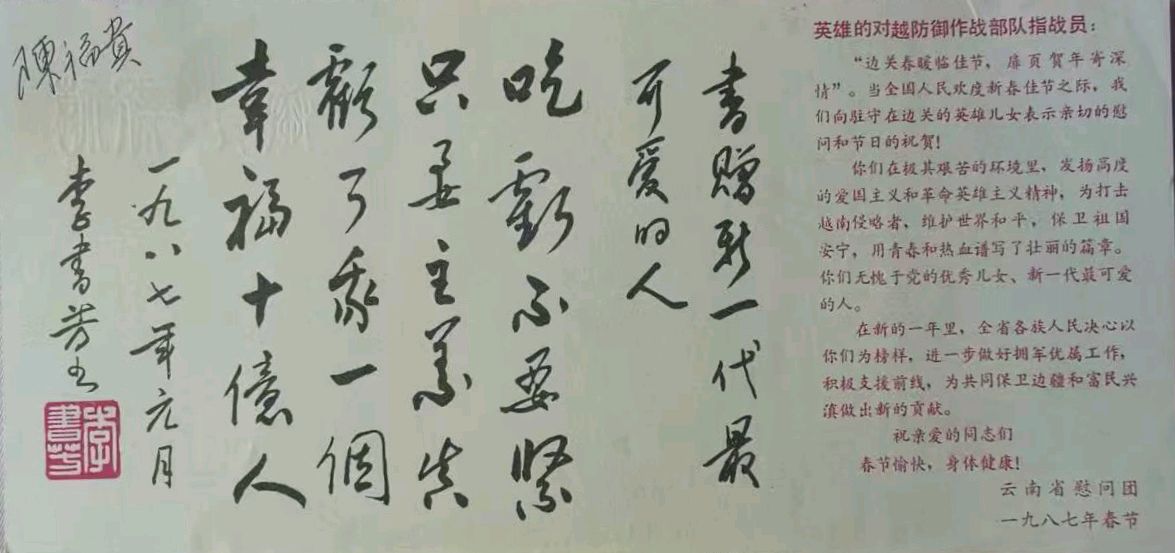 英雄的对越防御作战部队指战员：
“边关春暖临佳节，扉页贺年寄深
情”。当全国人民欢度新春佳节之际，我
们向驻守在边关的英雄儿女表示亲切的慰
问和节日的祝贺！
你们在极其艰苦的环境里，发扬高度
的爱国主义和革命英雄主义精神，为打击
越南侵略者，维护世界和平，保卫祖国
安宁，用青春和热血谱写了壮丽的篇章。
你们无愧于党的优秀儿女、新一代最可爱
的人。
在新的一年里，全省各族人民决心以
你们为榜样，进一步做好拥军优属工作，
积极支援前线，为共同保卫边疆和富民兴
滇做出新的贡献。
祝亲爱的同志们
春节愉快，身体健康！
云南省慰问团
一九八七年春节
書贈新一代最
可愛的人
吃虧不要緊
只要主義真
虧了我一個
幸福十億人
一九八七年元月
李書芳书
李書芳
陳福貴